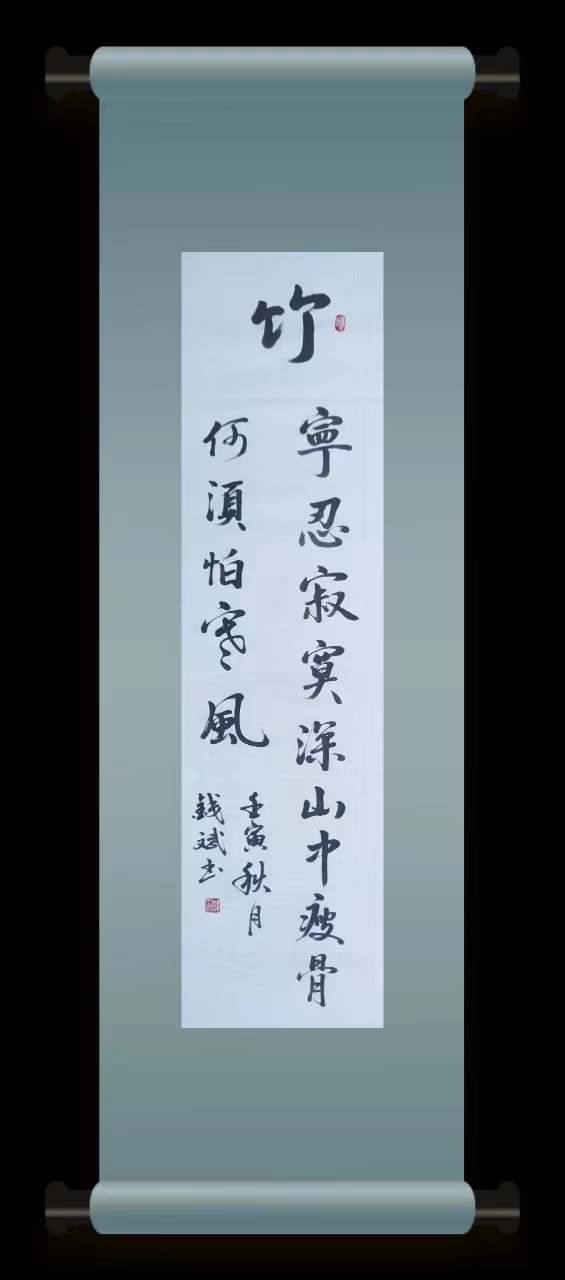 竹
寧忍寂寞深山中瘦骨
何須怕寒風
壬寅秋月
錢斌书